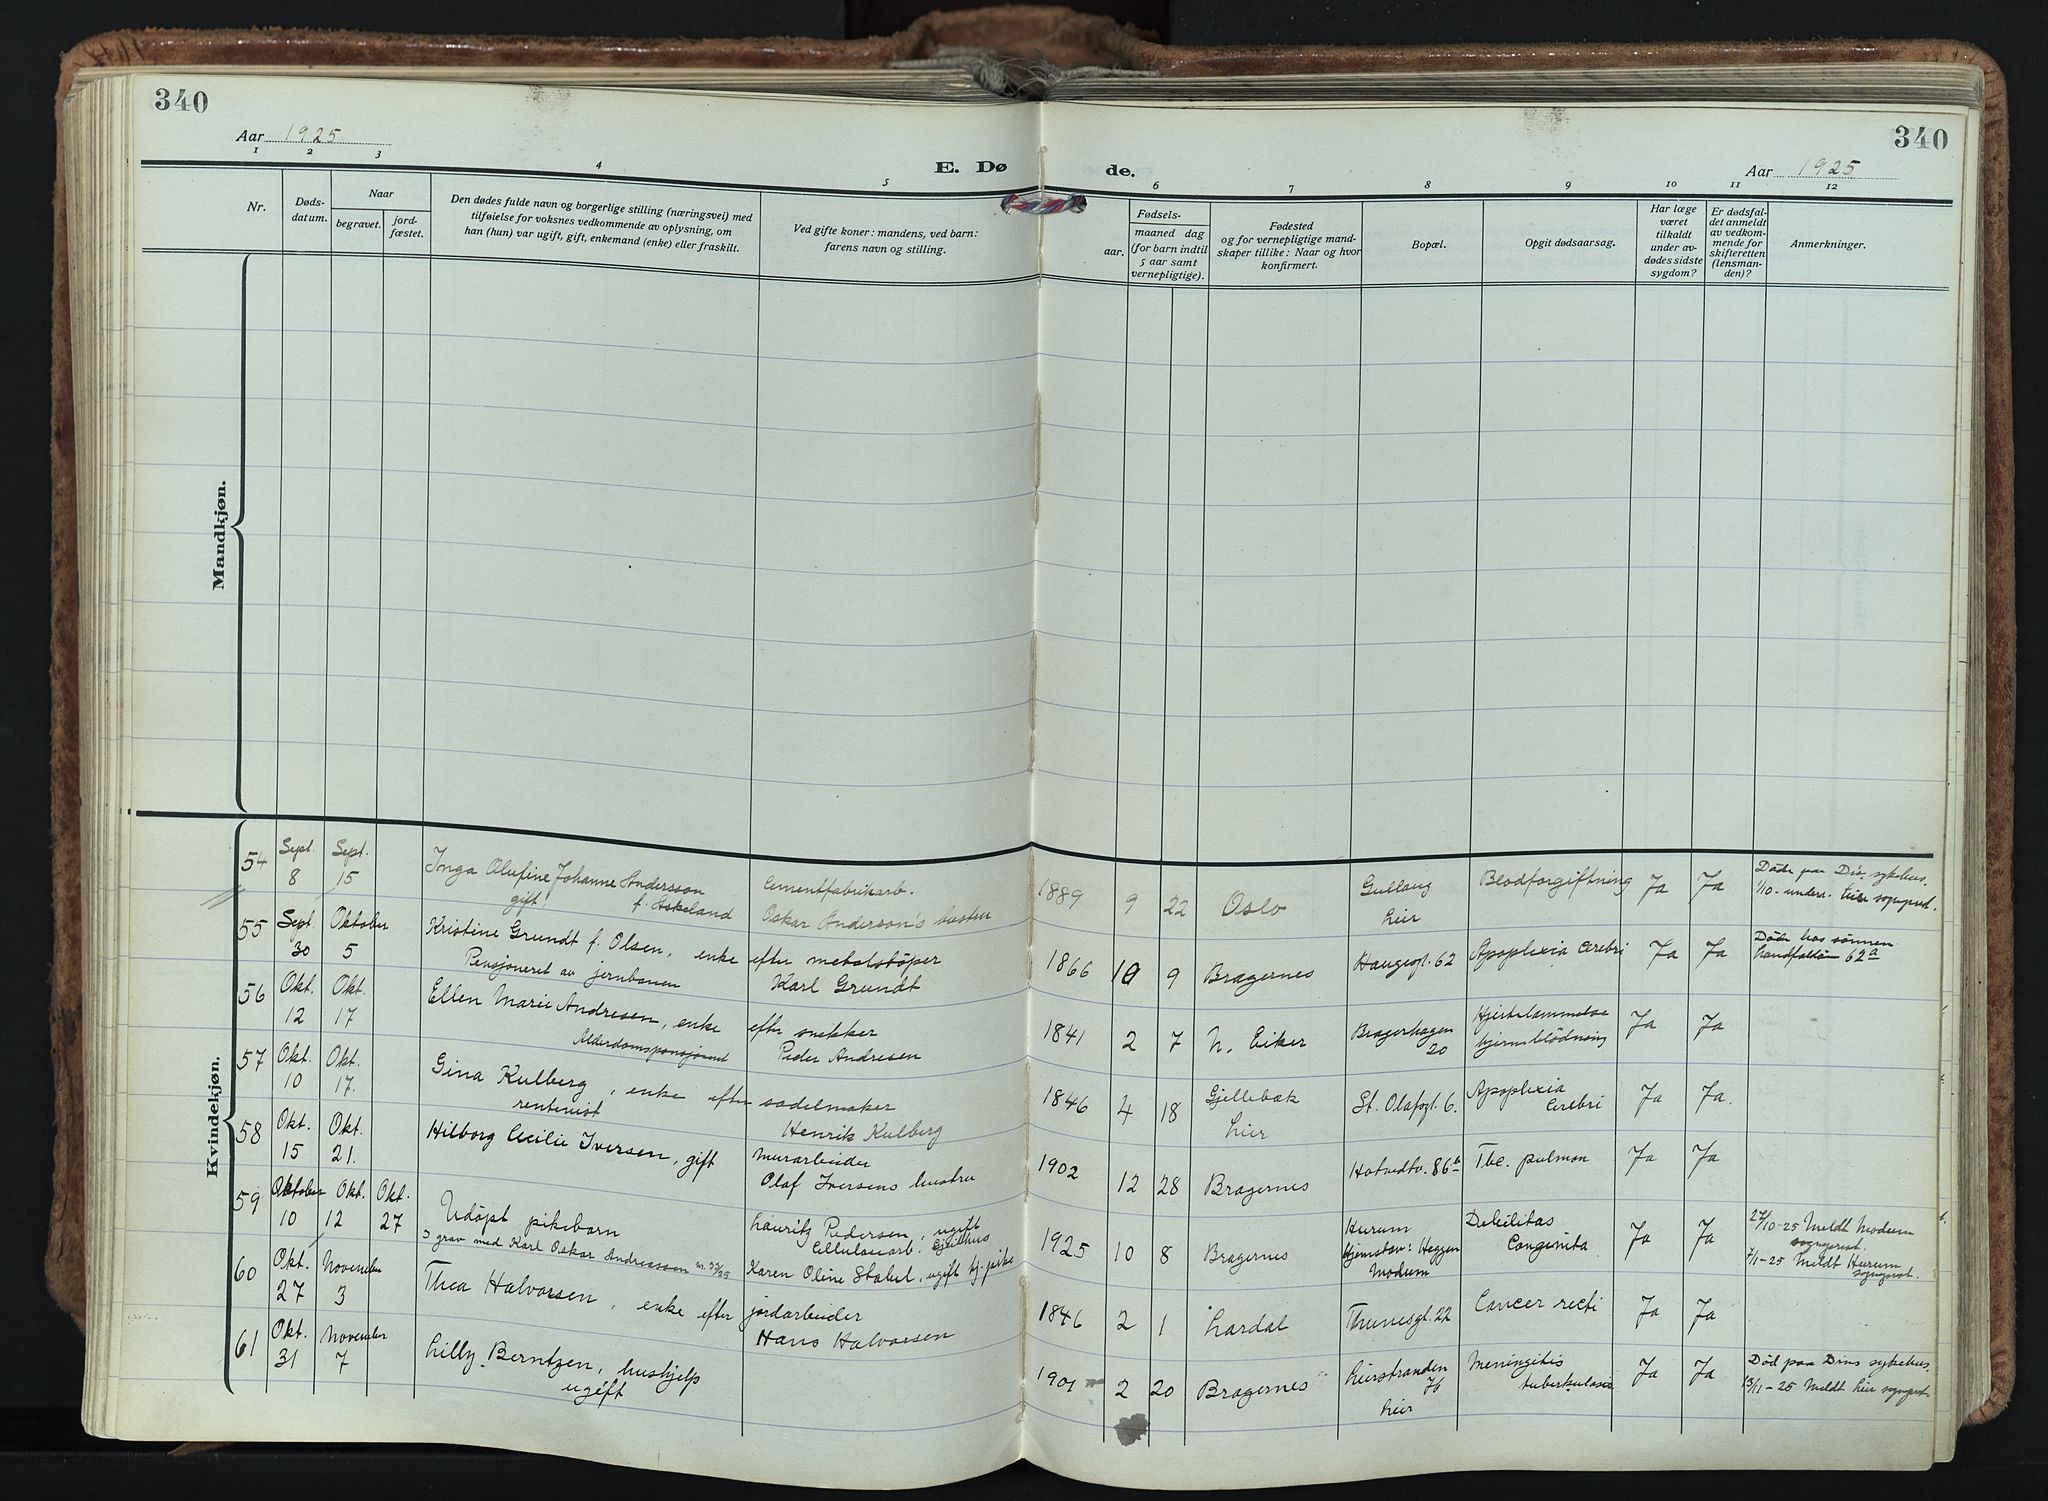 340
340
Aar 1925
Aar 1925
E. Dø de.
1 2 3 4 5 6 7 8 9 10 11 12
Nr.
Døds-
datum.
Naar
begravet.
jord-
fæstet.
Den dødes fulde navn og borgerlige stilling (næringsvei) med
tilføielse for voksnes vedkommende av oplysning, om
han (hun) var ugift, gift, enkemand (enke) eller fraskilt.
Ved gifte koner: mandens, ved barn:
farens navn og stilling.
Fødsels-
aar.
maaned dag
(for barn indtil
5 aar samt
vernepligtige).
Fødested
og for vernepligtige mand-
skaper tillike: Naar og hvor
konfirmert.
Bopæl.
Opgit dødsaarsag.
Har læge
været
tilkaldt
under av-
dødes sidste
sygdom?
Er dødsfal-
det anmeldt
av vedkom-
mende for
skifteretten
(lensman-
den)?
Anmerkninger.
Mandkjøn.
Kvindekjøn.
54 Sept. 8 Sept. 15
Inga Olufine Johanne Andersson
gift f. Askeland
Cementfabrikarb.
Oskar Andersson's hustru
1889 9 22 Oslo
Gullaug
Lier
Blodforgiftning Ja Ja
Døde paa Drs. sykehus.
1/10- underr. Lier sogneprest.
55 Sept. 30 Oktober 5
Kristine Grundt f. Olsen, enke efter metalstøper
Pensjoneret av jernbanen Karl Grundt
1866 10 9 Bragernes Haugesgt. 62 Apoplexia cerebri Ja Ja
Døde hos sønnen
62a
56 Okt. 12 Okt. 17
Ellen Marie Andresen, enke efter snekker
Alderdomspensjonist Peder Andresen
1841 2 7 N. Eiker
Bragerhagen
20
Hjertelammelse
hjerneblødning
Ja Ja
57 Okt. 10 Okt. 17.
Gina Kulberg, enke efter sadelmaker
rentenist Henrik Kulberg
1846 4 18
Gjellebæk
Lier
St. Olafsgt. 6.
Apoplexia
Cerebri
Ja Ja.
58 Okt. 15 Okt. 21.
Hilborg Cecilie Iversen, gift
Murarbeider
Olaf Iversens hustru
1902 12 28 Bragernes Hotvedtv. 86b Tbc. pulmon Ja Ja
59 Oktober 10 Okt. 12 Okt. 27
Udøpt pikebarn
I grav med Karl Oskar Andreassen
Lauritz Pedersen, ugift
Cellulosearb. Gjeithus
Karen Oline Stabel, ugift tj. pike
1925 10 8 Bragernes
Hurum
Hjemstavn: Heggen
Modum
Debilitas
Congenita
Ja Ja
27/10-25 Meldt Modum
sogneprest.
7/1-25 Meldt Hurum
sogneprest.
60 Okt. 27 November 3
Thea Halvorsen, enke efter jordarbeider
Hans Halvorsen
1846 2 1 Lardal Thunesgt. 22 Cancer recti Ja Ja
61 Okt. 31 November 7
Lilly Berntzen, hushjelp
ugift
1901 2 20 Bragernes
Lierstranden
76
Lier
Meningitis
tuberkulosis
Ja Ja
Død paa Drms sykehus.
13/11-25 Meldt Lier sogneprest